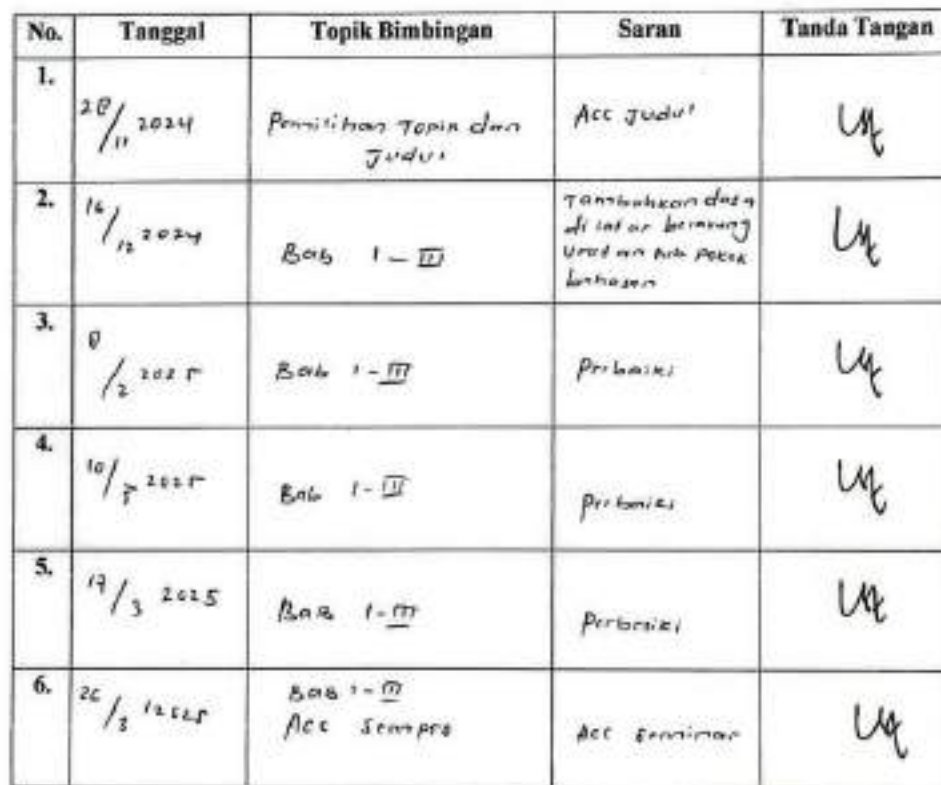 No. Tanggal Topik Bimbingan Saran Tanda Tangan
1. 28/11 2024 Pemilihan Topik dan Judul Acc Judul
2. 16/12 2024 Bab I - III Tambahkan data
di latar belakang
Urutan pokok
bahasan
3. 8/2 2025 Bab I - III Perbaiki
4. 10/3 2025 Bab I - III Perbaiki
5. 17/3 2025 BaB I - III Perbaiki
6. 26/3 BAB I - III
Acc Sempro Acc Seminar